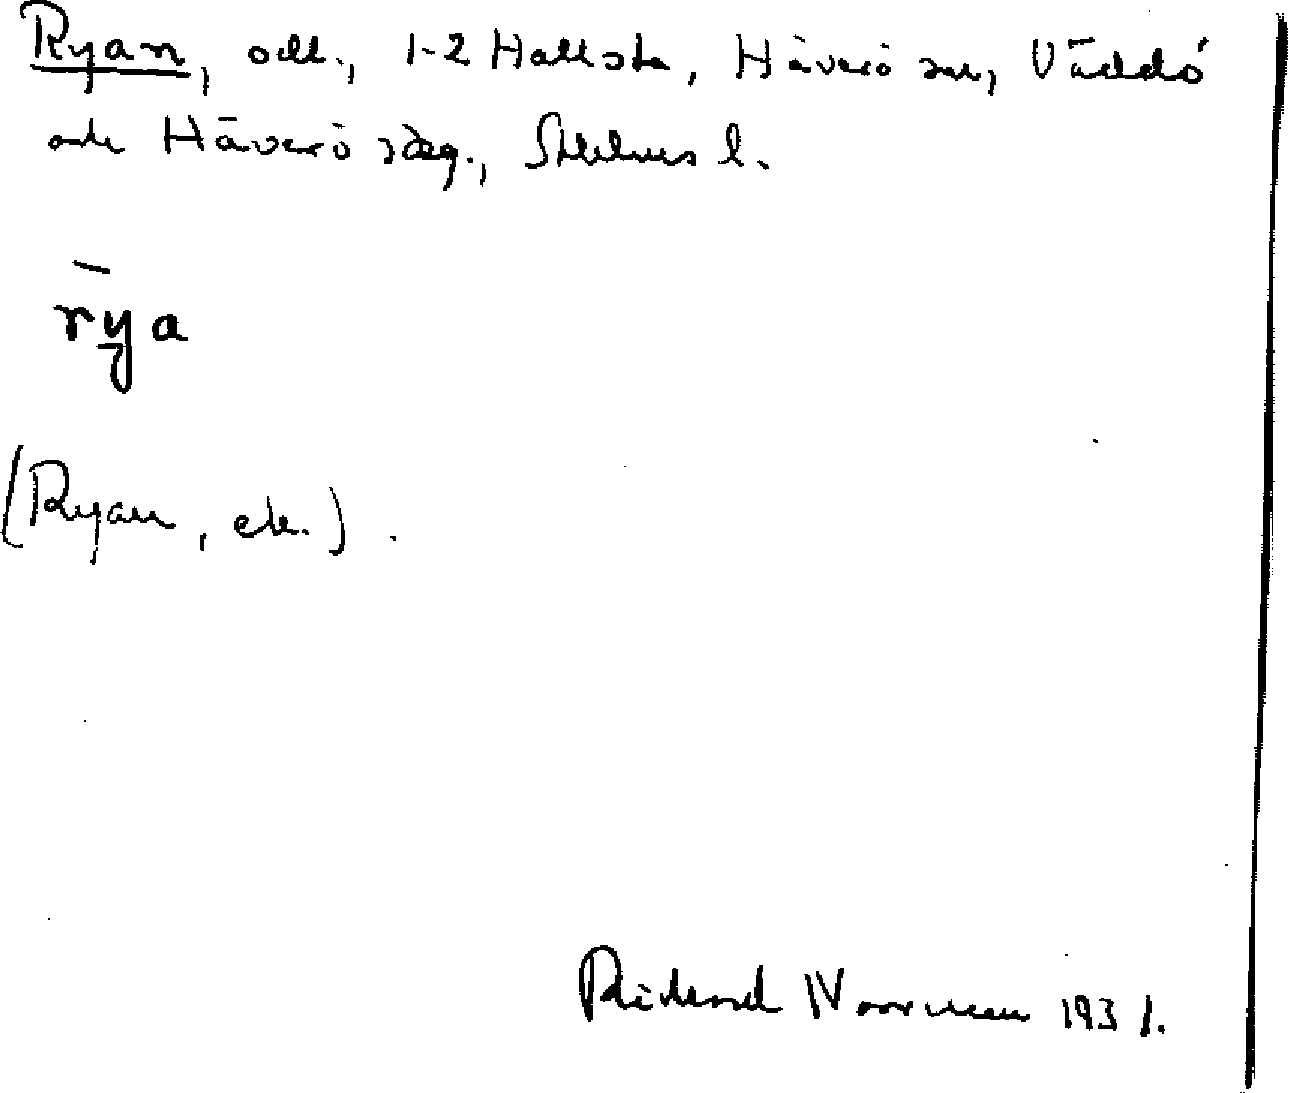 Ryan, odl., 1-2 Hallsta, Häverö sn, Väddö
och Häverö skg., Sthlms l.
rya
(Ryan, ek.).
Rickard Norrman 1931.